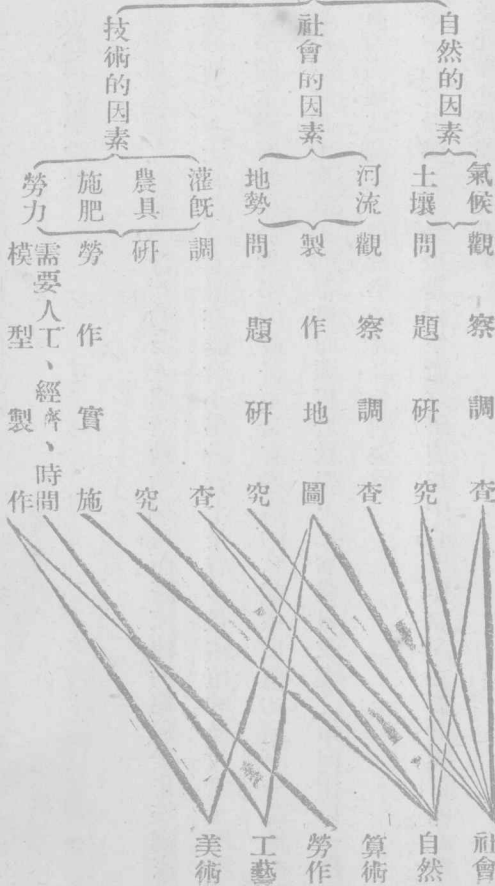 自然的因素
社會的因素
技術的因素
氣候
土壤
河流
地勢
灌旣
農具
施肥
勞力
觀察調查
問題研究
觀察調查
製作地圖
問題研究
調查
研究
勞作實施
需要人工、經濟、時間
模型製作
社會
自然
算術
勞作
工藝
美術